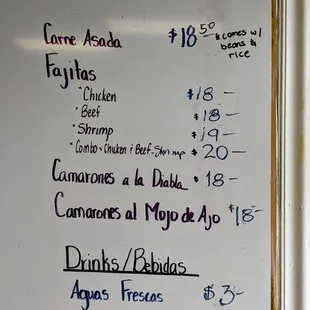 Carne Asada $18.50 * comes w/
beans &
rice
Fajitas
* Chicken $18 —
* Beef $18 —
* Shrimp $19 —
* Combo • Chicken & Beef - Shrimp $20 —
Camarones a la Diabla $18 —
Camarones al Mojo de Ajo $18 —
Drinks / Bebidas
Aguas Frescas $3 —